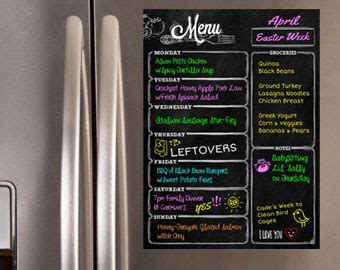 Menu
April
Easter Week
MONDAY
Asian Pesto Chicken
w/Spicy Tortilla Soup
TUESDAY
Crockpot Honey Apple Pork Loin
w/Fresh Spinach Salad
WEDNESDAY
Italian Sausage Stir-Fry
THURSDAY
LEFTOVERS
FRIDAY
BBQ'd Black Bean Burgers
w/Sweet Potato Fries
SATURDAY
7pm Family Dinner
@ Carmine's
YAY!
SUNDAY
Honey-Teriyaki Glazed Salmon
w/Bok Choy
GROCERIES
Quinoa
Black Beans
Ground Turkey
Lasagna Noodles
Chicken Breast
Greek Yogurt
Corn & Veggies
Bananas & Pears
NOTES
Babysitting
Lil' Sally
on Thursday
Cade's Week to
Clean Bird
Cages
I LOVE YOU